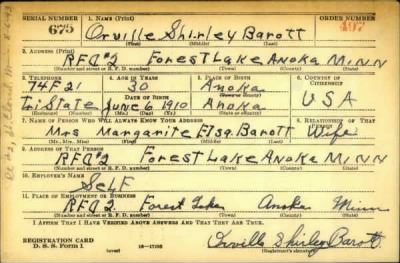 SERIAL NUMBER 1. NAME (Print) ORDER NUMBER
675 Orville Shirley Barott 497
(First) (Middle) (Last)
2. ADDRESS (Print)
RFD #2 Forest Lake Anoka Minn
(Number and street or R. F. D. number) (Town) (County) (State)
3. TELEPHONE 4. AGE IN YEARS 5. PLACE OF BIRTH 6. COUNTRY OF CITIZENSHIP
74F21 30 Anoka
DATE OF BIRTH
Tri State June 6 1910 Anoka USA
(Exchange) (Number) (Mo.) (Day) (Yr.) (State or country)
7. NAME OF PERSON WHO WILL ALWAYS KNOW YOUR ADDRESS 8. RELATIONSHIP OF THAT PERSON
Mrs Margarite Barott Wife
(Mr., Mrs., Miss) (First) (Middle) (Last)
9. ADDRESS OF THAT PERSON
RFD #2 Forest Lake Anoka Minn
(Number and street or R. F. D. number) (Town) (County) (State)
10. EMPLOYER'S NAME
Self
11. PLACE OF EMPLOYMENT OR BUSINESS
RFD 2. Forest Lake Anoka Minn
(Number and street or R. F. D. number) (Town) (County) (State)
I AFFIRM THAT I HAVE VERIFIED ABOVE ANSWERS AND THAT THEY ARE TRUE.
REGISTRATION CARD
D. S. S. Form 1 16-17105 Orville Shirley Barott
(Registrant's signature)